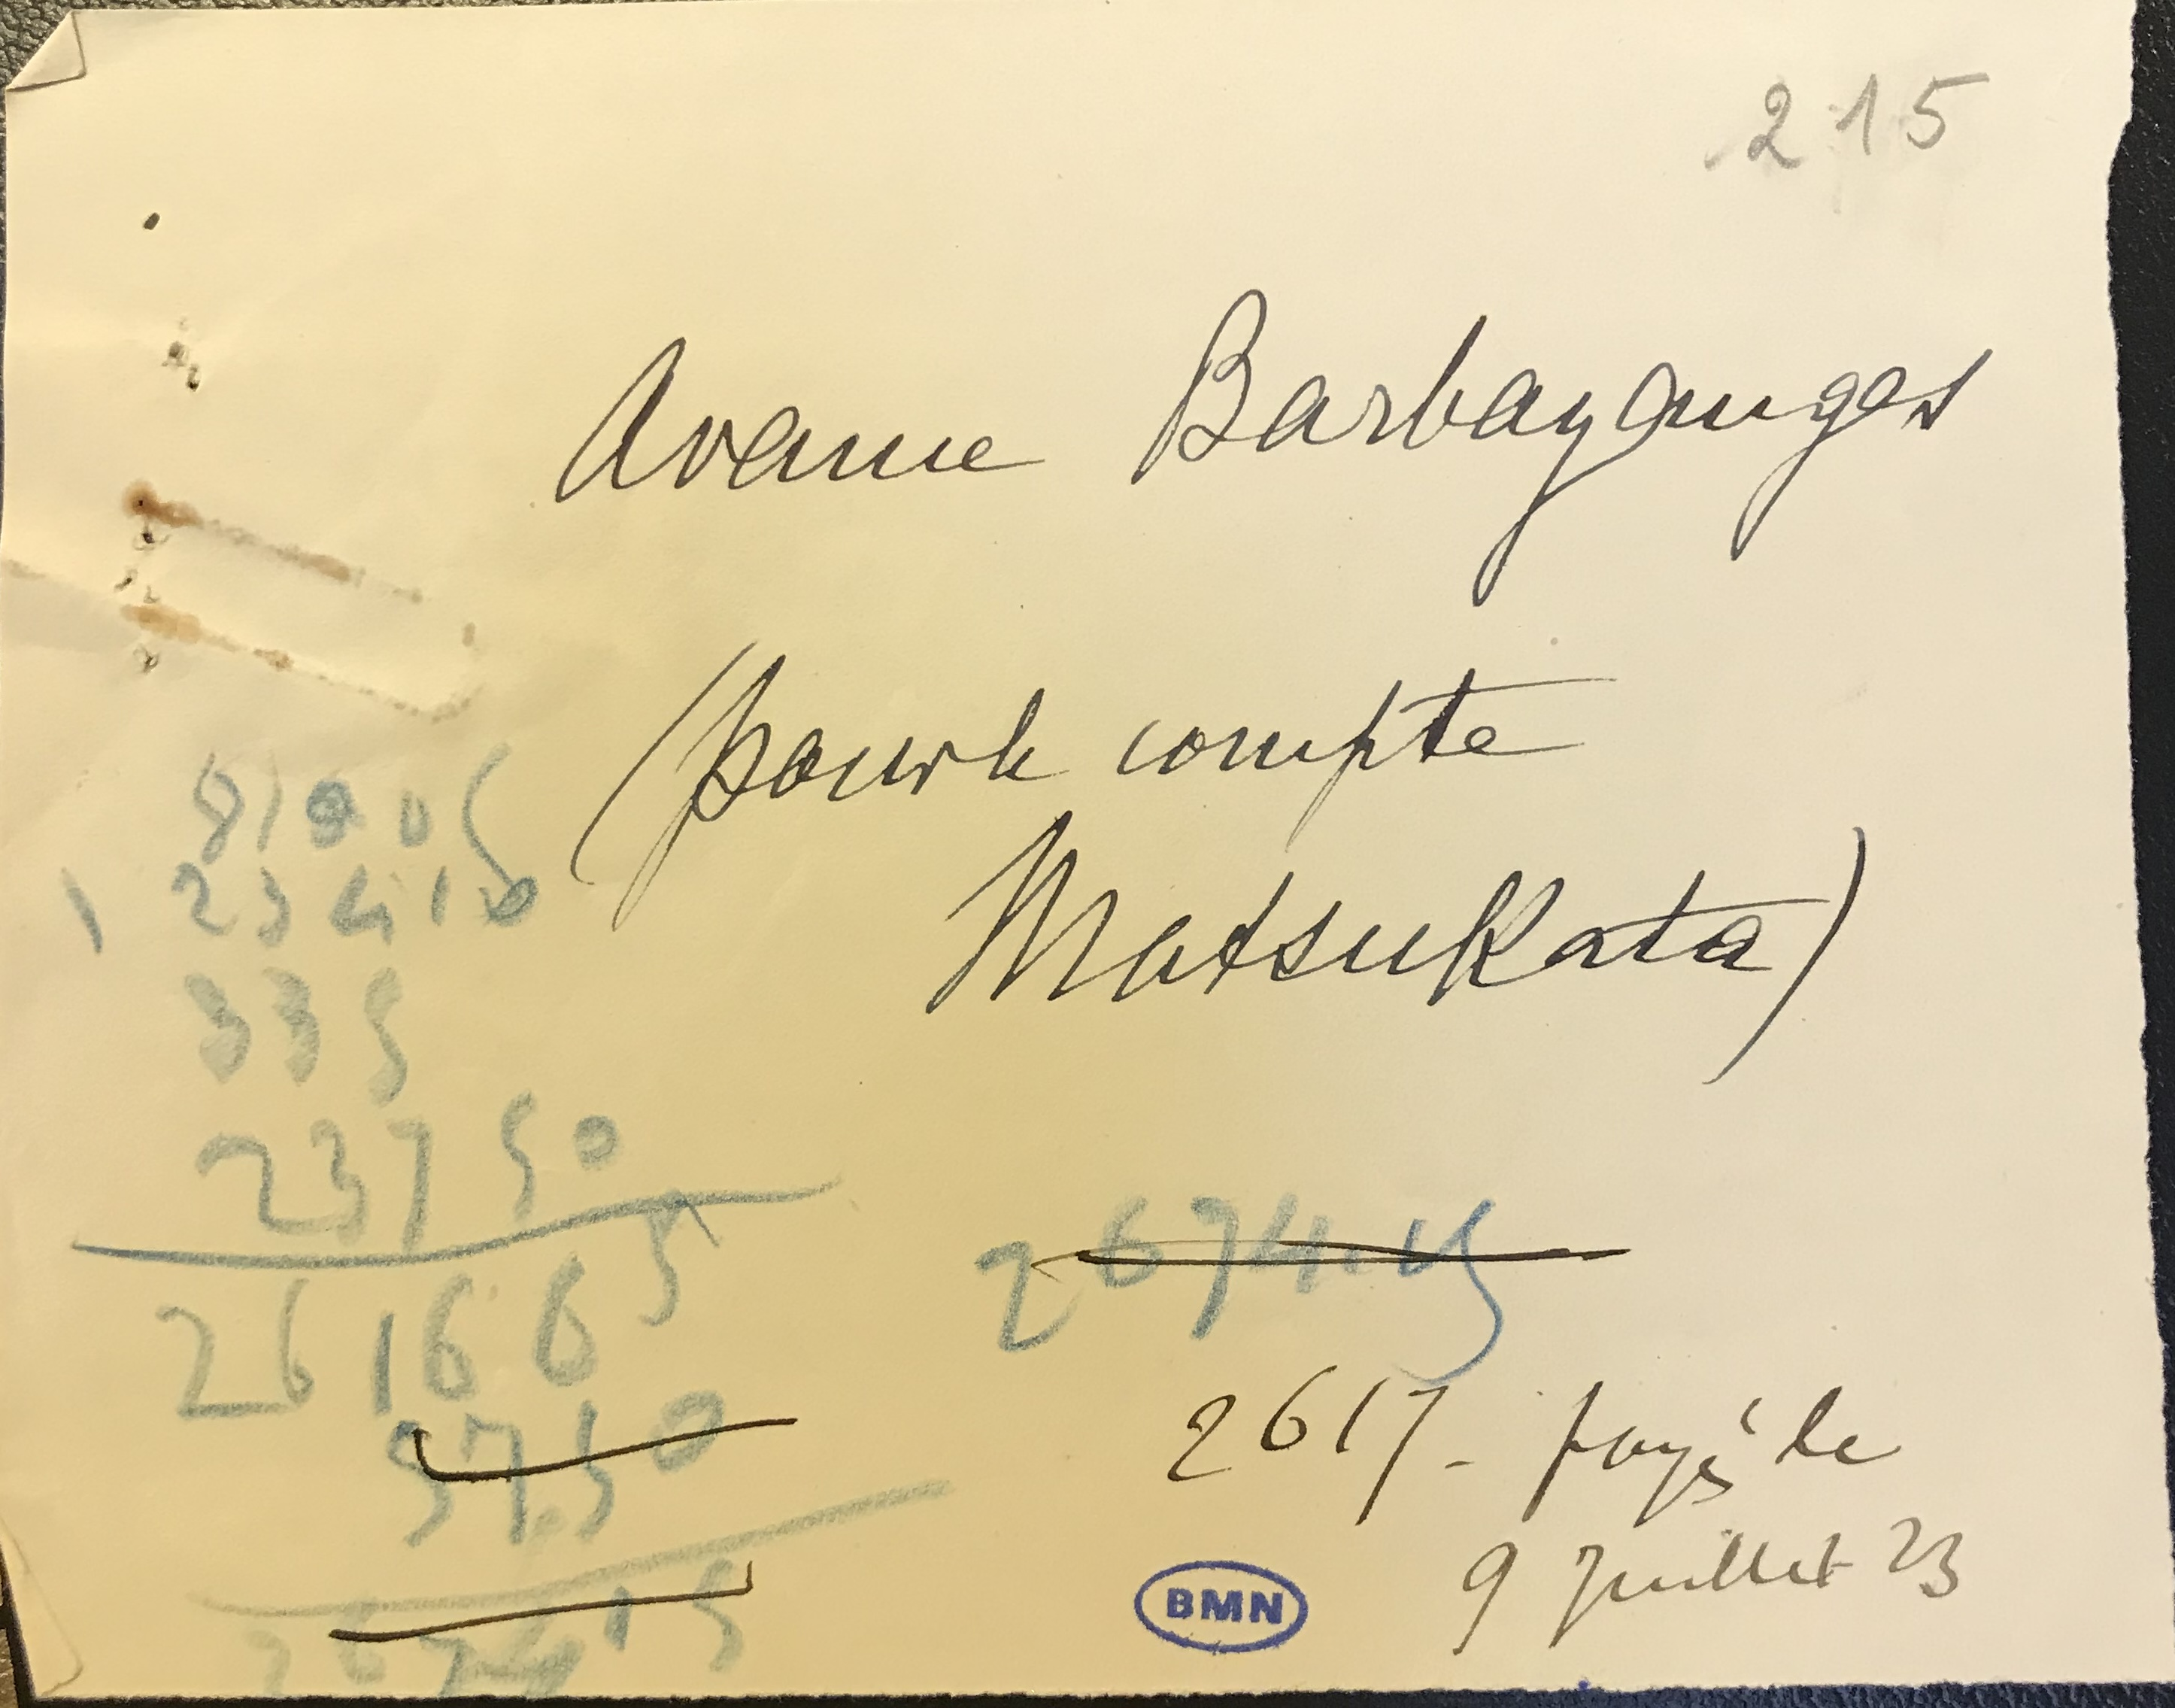 215
Avance Barbazanges
(pour le compte
Matsukata)
1 23410
335
237 50
26166 5
57.50
2674.15
2674.15
2617 - payé le
9 Juillet 23
BMN